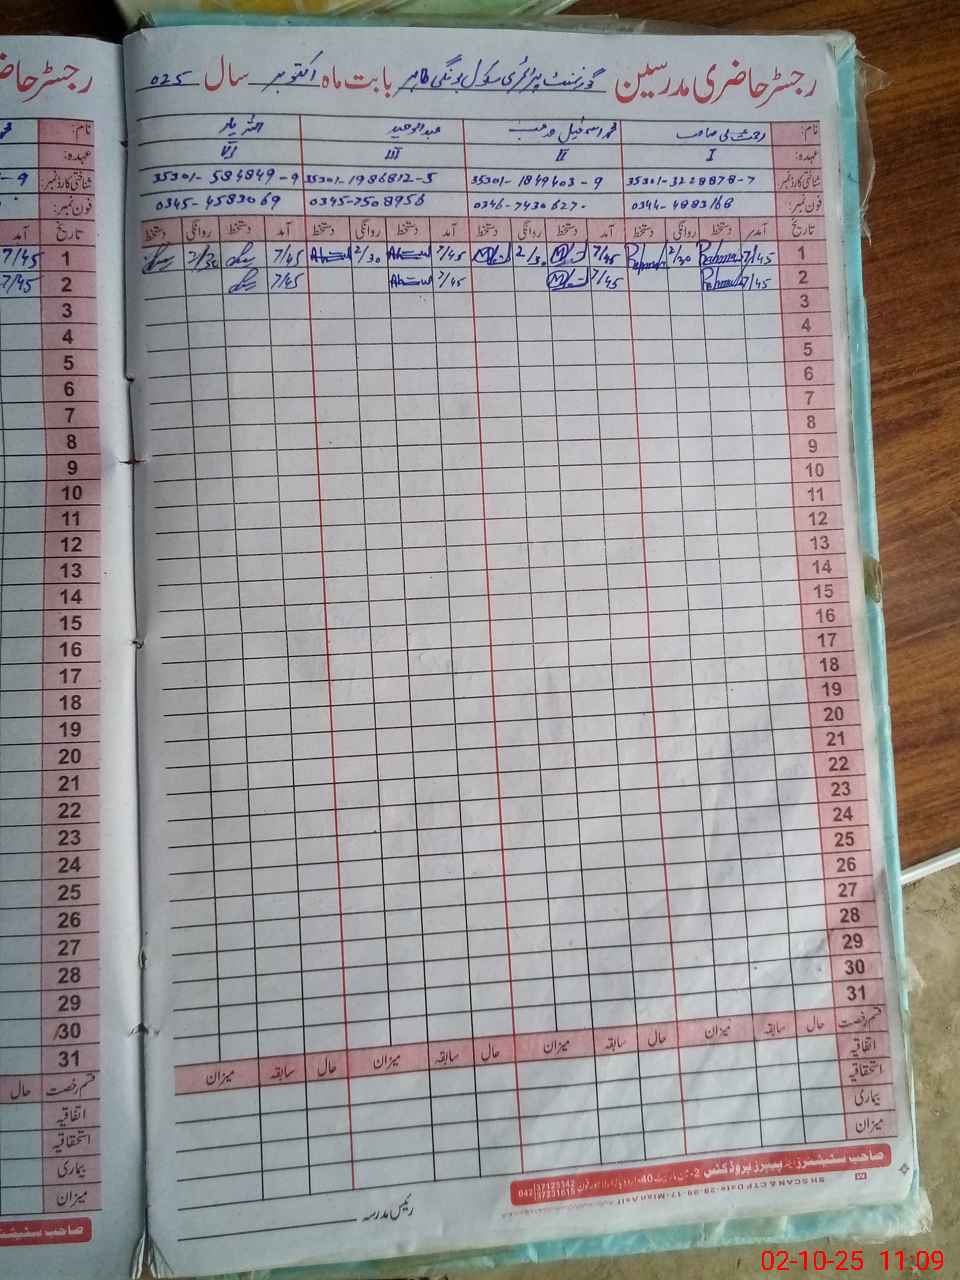 رجسٹر حاضری مدرسین گورنمنٹ پرائمری سکول بابت ماہ اکتوبر سال 025
نام: رحمت علی صاحب محمد اسمعیل عبدالوحید
عہدہ: I II III VI
شناختی کارڈ نمبر: 35301-3228878-7 35301-1849403-9 35301-1986812-5 35301-584849-9
فون نمبر: 0344-4883168 0346-7430627 0345-7508956 0345-4583069
تاریخ آمد دستخط روانگی دستخط آمد دستخط روانگی دستخط آمد دستخط روانگی دستخط آمد دستخط روانگی دستخط
1 7/45 Rahmat 2/30 Rahmat 7/45 2/30 7/45 2/30 7/45 2/30
2 7/45 Rahmat 7/45 7/45 7/45
3
4
5
6
7
8
9
10
11
12
13
14
15
16
17
18
19
20
21
22
23
24
25
26
27
28
29
30
31
قسم رخصت حال سابقہ میزان حال سابقہ میزان حال سابقہ میزان حال سابقہ میزان
اتفاقیہ
استحقاقیہ
بیماری
میزان
رئیس مدرسہ
صاحب سٹیشنرز اینڈ پیپرز پروڈکٹس
042 37123342
37231615
رجسٹر حاضری
آمد تاریخ
7/45 1
7/45 2
3
4
5
6
7
8
9
10
11
12
13
14
15
16
17
18
19
20
21
22
23
24
25
26
27
28
29
30
31
قسم رخصت حال
اتفاقیہ
استحقاقیہ
بیماری
میزان
02-10-25 11:09